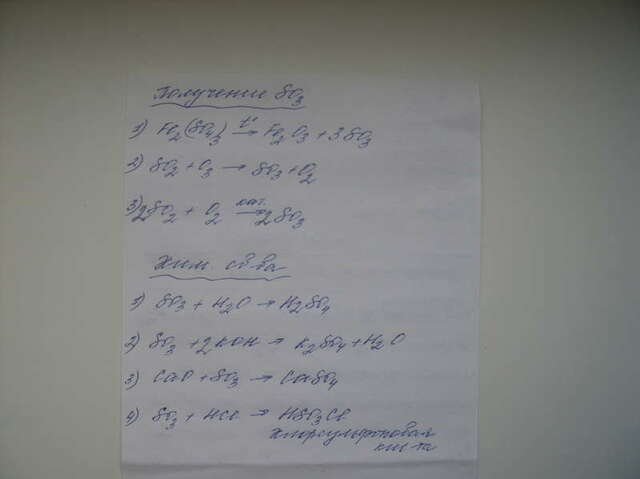 Получение SO3
1) Fe2(SO4)3 t°→ Fe2O3 + 3SO3
2) SO2 + O3 → SO3 + O2
3) 2SO2 + O2 кат.→ 2SO3
Хим. св-ва
1) SO3 + H2O → H2SO4
2) SO3 + 2KOH → K2SO4 + H2O
3) CaO + SO3 → CaSO4
4) SO3 + HCl → HSO3Cl
хлорсульфоновая
кис-та